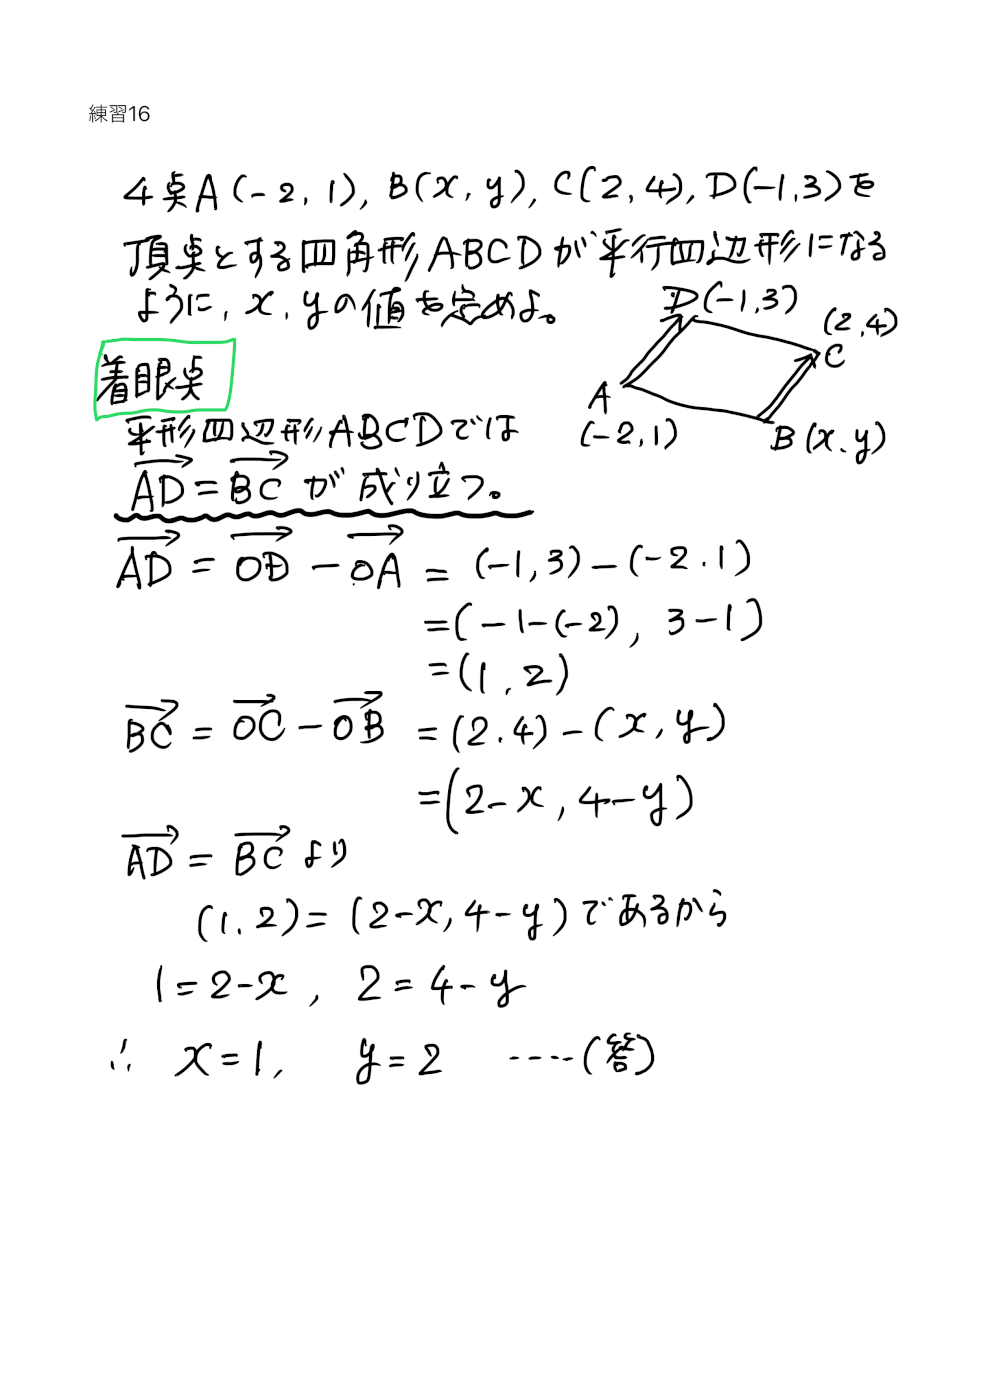 練習16
4点A(-2,1),B(x,y),C(2,4),D(-1,3)を
頂点とする四角形ABCDが平行四辺形になる
ように,x,yの値を定めよ。
D(-1,3)
(2,4)
C
A
(-2,1)
B(x,y)
着眼点
平形四辺形ABCDでは
AD=BCが成り立つ。
AD=OD-OA=(-1,3)-(-2.1)
=(-1-(-2),3-1)
=(1,2)
BC=OC-OB=(2.4)-(x,y)
=(2-x,4-y)
AD=BCより
(1.2)=(2-x,4-y)であるから
1=2-x,2=4-y
∴x=1,y=2----(答)